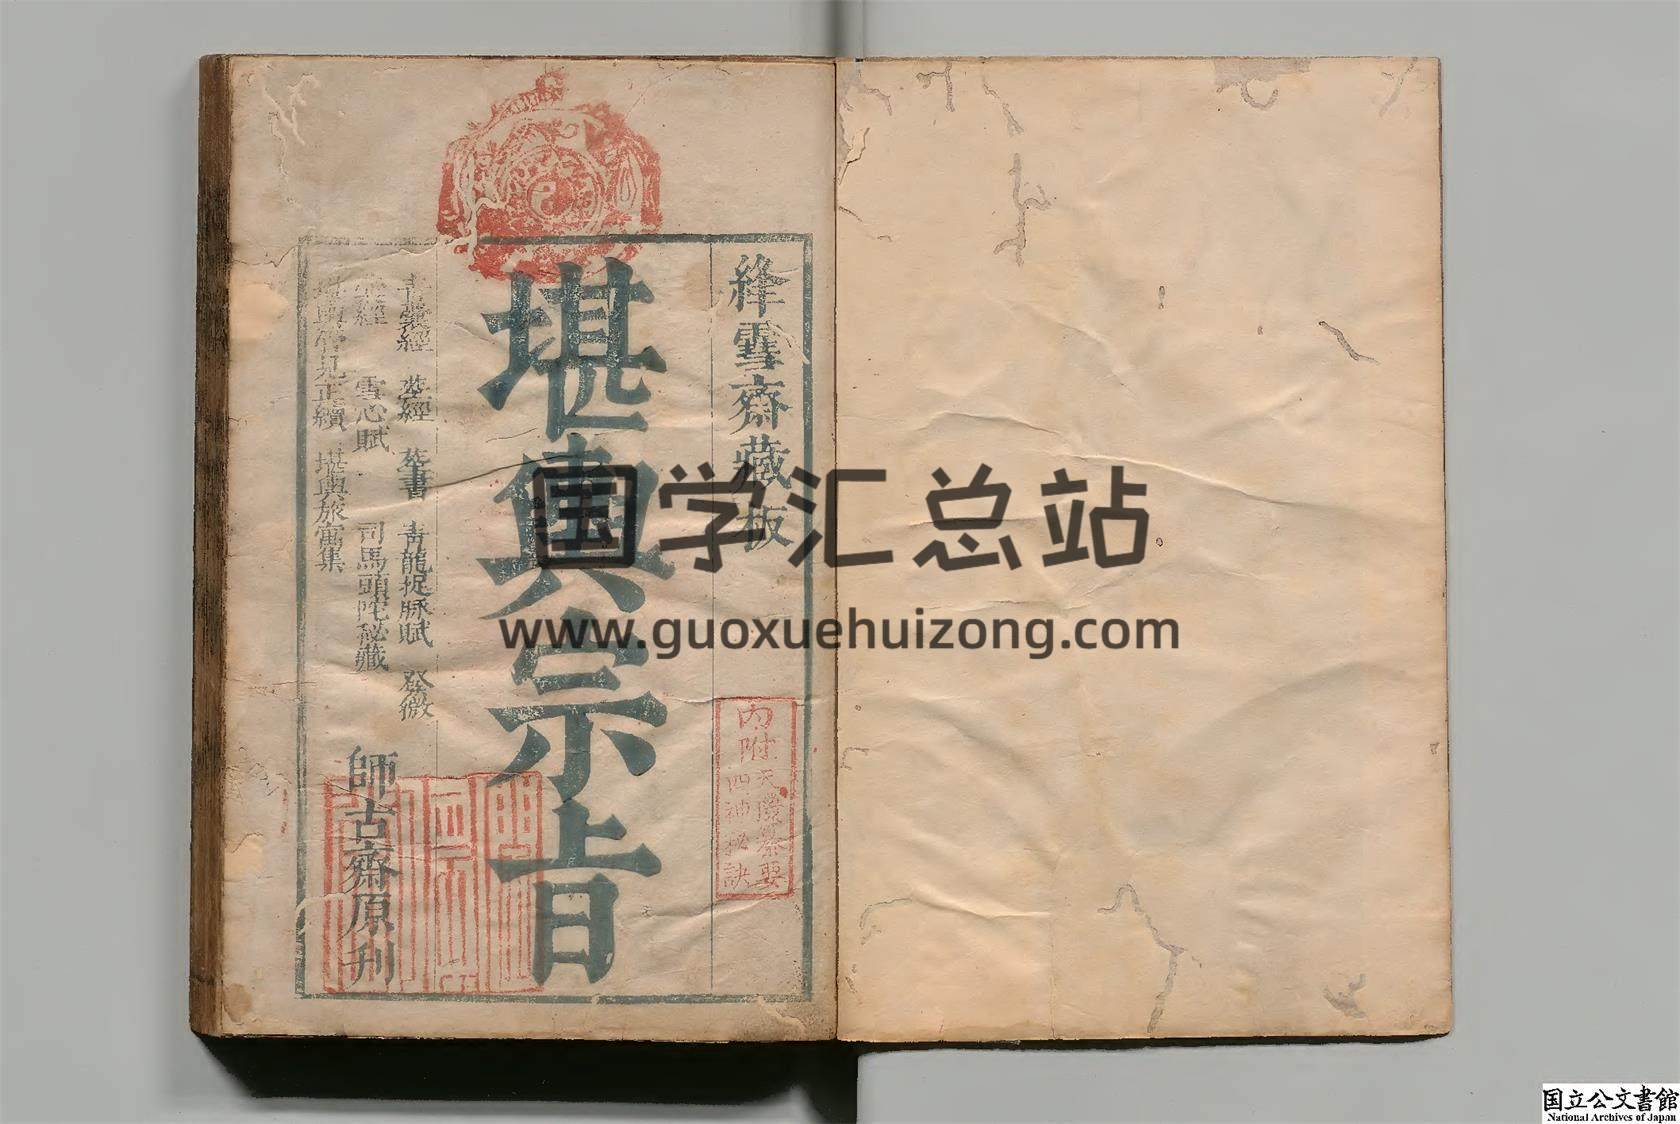 絳雪齋藏板
內附天機纂要
四神秘訣
堪輿宗旨
青囊經 葬經 葬書 青龍捉脉賦 發微
雪心賦 司馬頭陀秘藏
管見正續 堪輿旅寓集
師古齋原刊
国学汇总站
www.guoxuehuizong.com
国立公文書館
National Archives of Japan